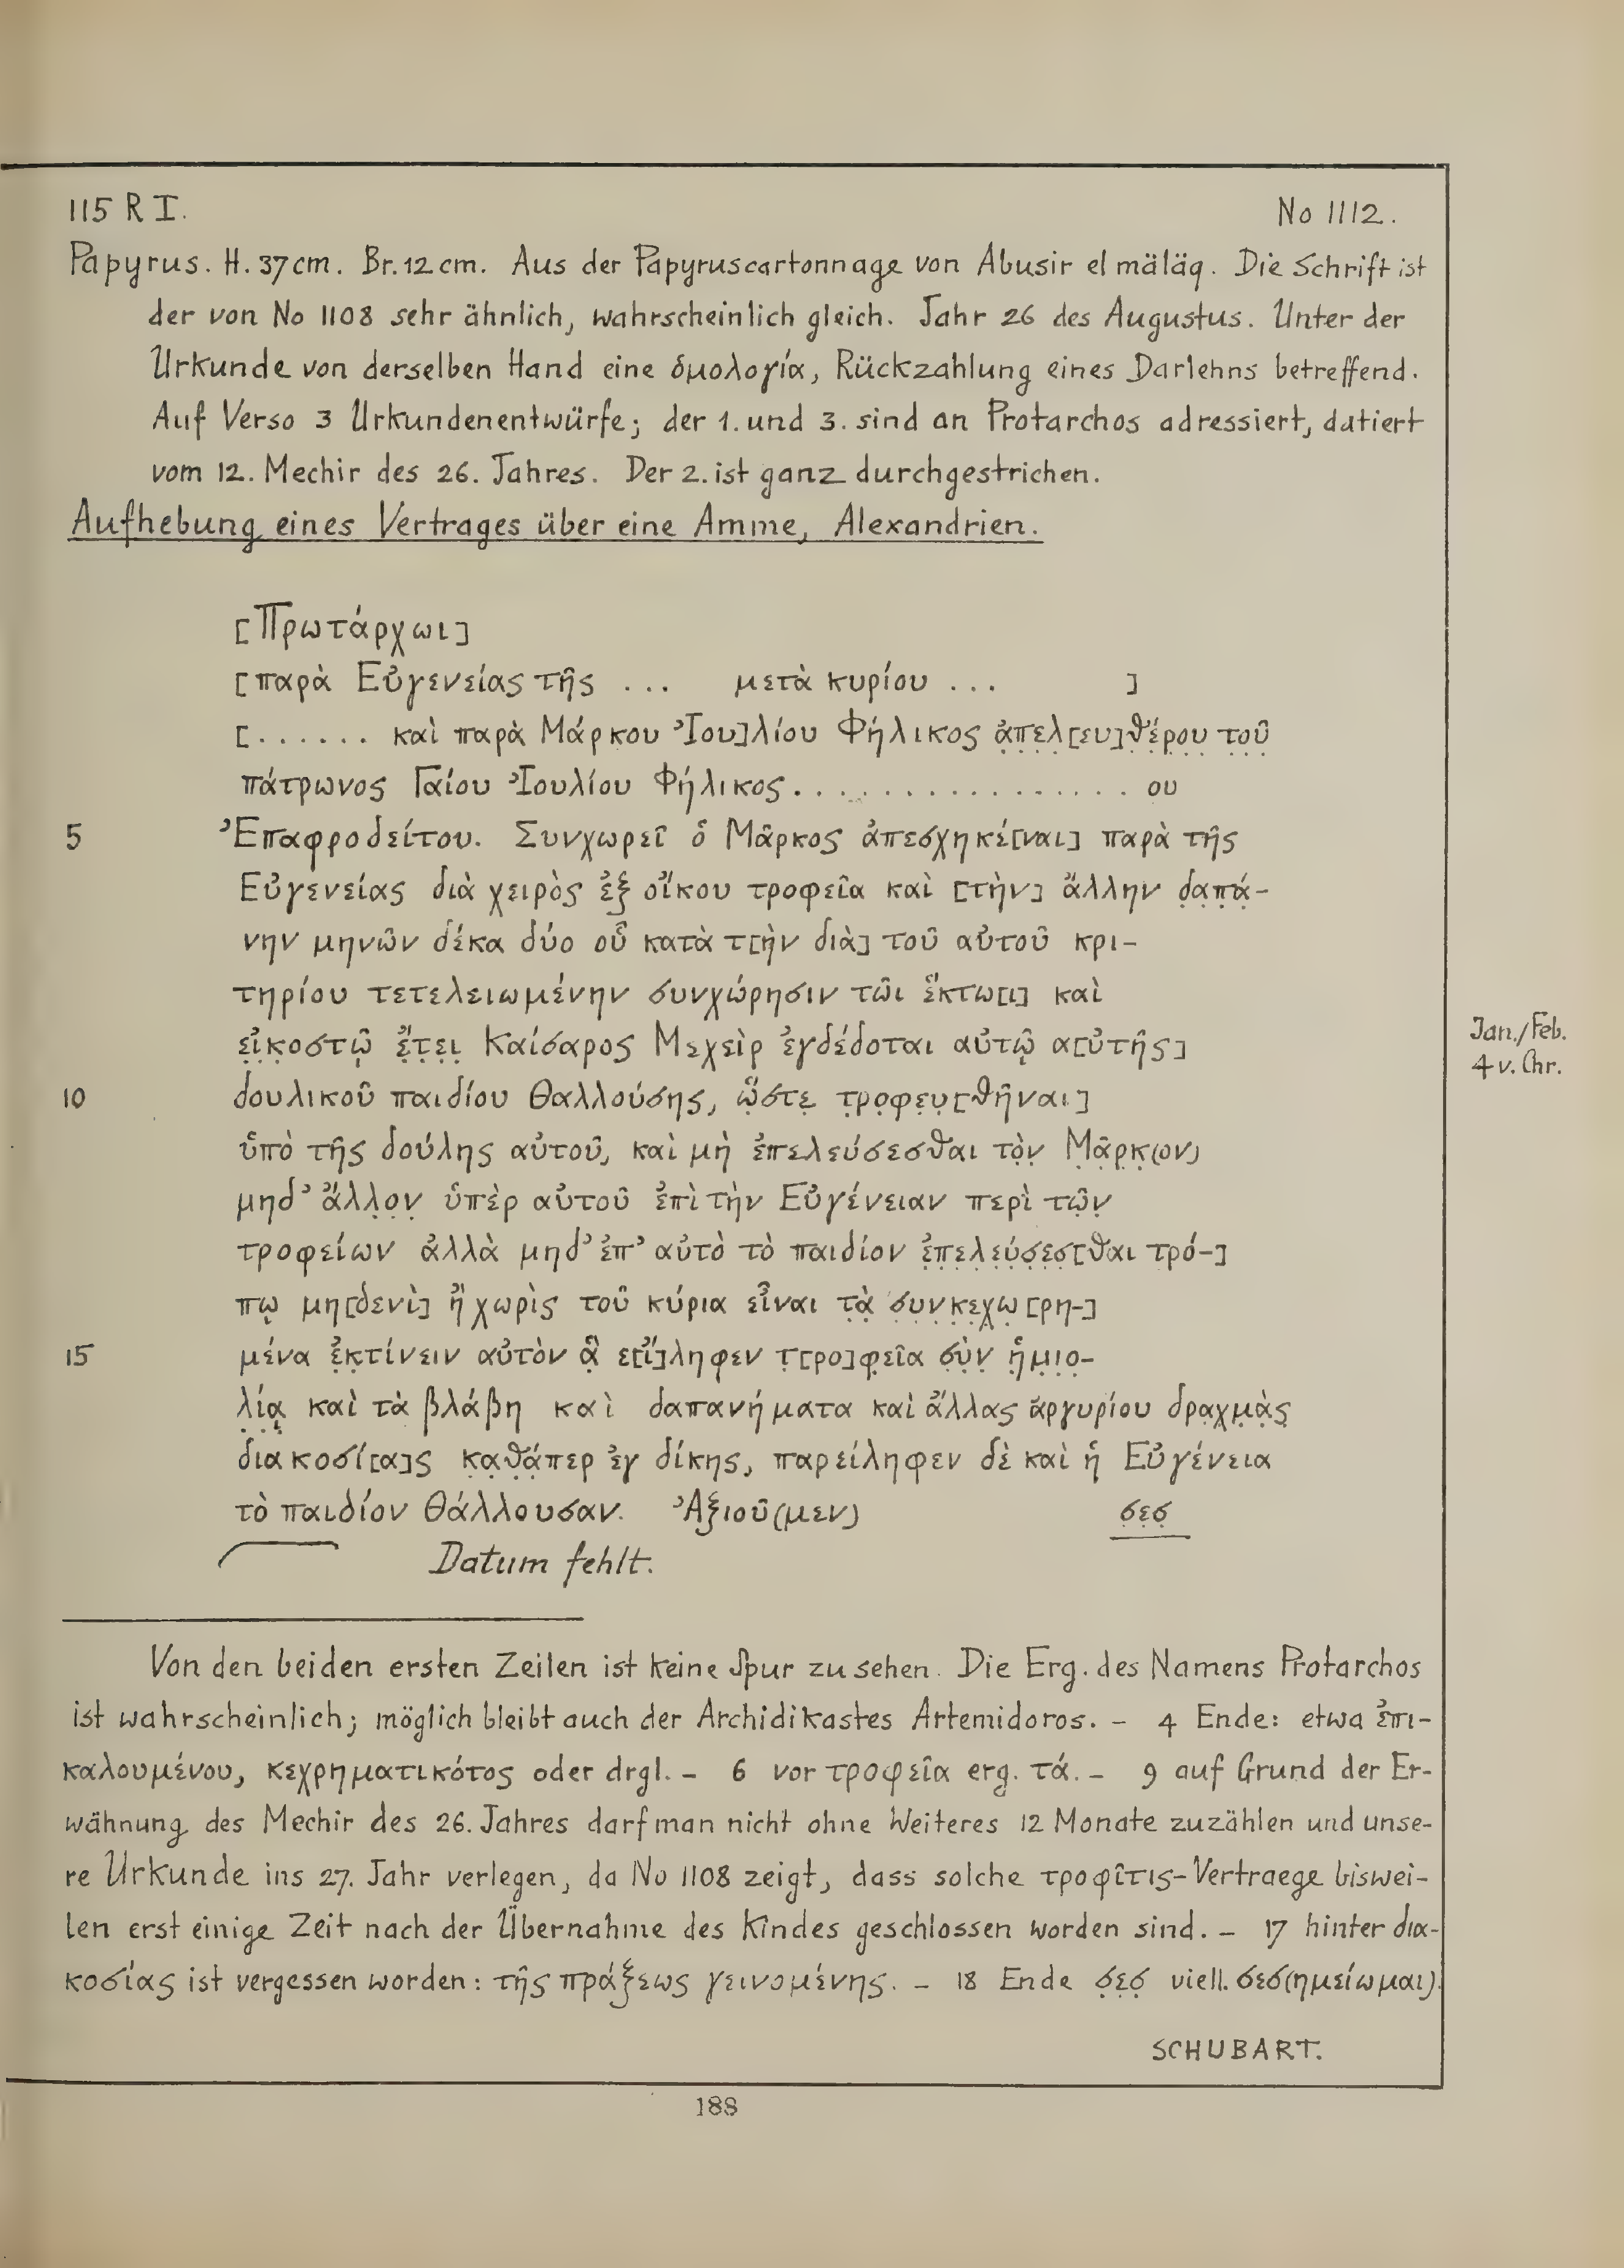 115 R I. No 1112.
Papyrus. H. 37cm. Br. 12cm. Aus der Papyruscartonnage von Abusir el mäläq. Die Schrift ist
der von No 1108 sehr ähnlich, wahrscheinlich gleich. Jahr 26 des Augustus. Unter der
Urkunde von derselben Hand eine ὁμολογία, Rückzahlung eines Darlehns betreffend.
Auf Verso 3 Urkundenentwürfe; der 1. und 3. sind an Protarchos adressiert, datiert
vom 12. Mechir des 26. Jahres. Der 2. ist ganz durchgestrichen.
Aufhebung eines Vertrages über eine Amme, Alexandrien.
[Πρωτάρχωι]
[παρὰ Εὐγενείας τῆς ... μετὰ κυρίου ... ]
[...... καὶ παρὰ Μάρκου Ἰου]λίου Φήλικος ἀ̣π̣ε̣λ̣[ευ]θ̣έ̣ρ̣ο̣υ̣ τ̣ο̣ῦ̣
πάτρωνος Γαίου Ἰουλίου Φήλικος................. ου
5 Ἐπαφροδείτου. Συνχωρεῖ ὁ Μᾶρκος ἀπεσχηκέ[ναι] παρὰ τῆς
Εὐγενείας διὰ χειρὸς ἐξ οἴκου τροφεῖα καὶ [τὴν] ἄλλην δ̣α̣π̣ά̣-
νην μηνῶν δέκα δύο οὗ κατὰ τ[ὴν διὰ] τοῦ αὐτοῦ κρι-
τηρίου τετελειωμένην συνχώρησιν τῶι ἕκτω[ι] καὶ
ε̣ἰ̣κ̣οστῷ ἔ̣τ̣ε̣ι̣ Καίσαρος Μεχεὶρ ἐγδέδοται αὐτῷ α[ὐτῆς]
10 δουλικοῦ παιδίου Θαλλούσης, ὥ̣στε̣ τ̣ρ̣ο̣φ̣ε̣υ̣[θῆναι]
ὑπὸ τῆς δούλης αὐτοῦ, καὶ μὴ ἐπελεύσεσθαι τὸ̣ν̣ Μ̣ᾶ̣ρ̣κ̣(ον)
μηδ’ ἄλλο̣ν̣ ὑπὲρ αὐτοῦ ἐπὶ τὴν Εὐγένειαν περὶ τῶ̣ν̣
τροφείων ἀλλὰ μηδ’ ἐπ’ αὐτὸ τὸ παιδίον ἐ̣π̣ε̣λ̣ε̣ύ̣σ̣ε̣σ̣[θαι τρό-]
πῳ μη[δενὶ] ἢ χωρὶς τοῦ κύρια εἶναι τ̣ὰ̣ σ̣υ̣ν̣κ̣ε̣χ̣ω̣[ρη-]
15 μένα ἐ̣κ̣τίνειν αὐτὸν ἃ̣ ε[ἴ]ληφεν τ̣[ρο]φ̣εῖα σ̣ὺ̣ν̣ ἡ̣μ̣ι̣ο̣-
λ̣ί̣ᾳ̣ καὶ τὰ βλάβη καὶ δαπανήματα καὶ ἄλλας ἀργυρίου δραχ̣μ̣ὰ̣ς̣
διακοσί[α]ς κ̣α̣θ̣ά̣περ ἐγ δίκης, παρείληφεν δὲ καὶ ἡ Εὐγένεια
τὸ παιδίον Θάλλουσαν. Ἀξιοῦ(μεν) σ̣ε̣σ̣
Datum fehlt.
Jan./Feb.
4 v. Chr.
Von den beiden ersten Zeilen ist keine Spur zu sehen. Die Erg. des Namens Protarchos
ist wahrscheinlich; möglich bleibt auch der Archidikastes Artemidoros. – 4 Ende: etwa ἐπι-
καλουμένου, κεχρηματικότος oder drgl. – 6 vor τροφεῖα erg. τά. – 9 auf Grund der Er-
wähnung des Mechir des 26. Jahres darf man nicht ohne Weiteres 12 Monate zuzählen und unse-
re Urkunde ins 27. Jahr verlegen, da No 1108 zeigt, dass solche τροφῖτις-Vertraege biswei-
len erst einige Zeit nach der Übernahme des Kindes geschlossen worden sind. – 17 hinter δια-
κοσίας ist vergessen worden: τῆς πράξεως γεινομένης. – 18 Ende σ̣ε̣σ̣ viell. σεσ(ημείωμαι).
SCHUBART.
188